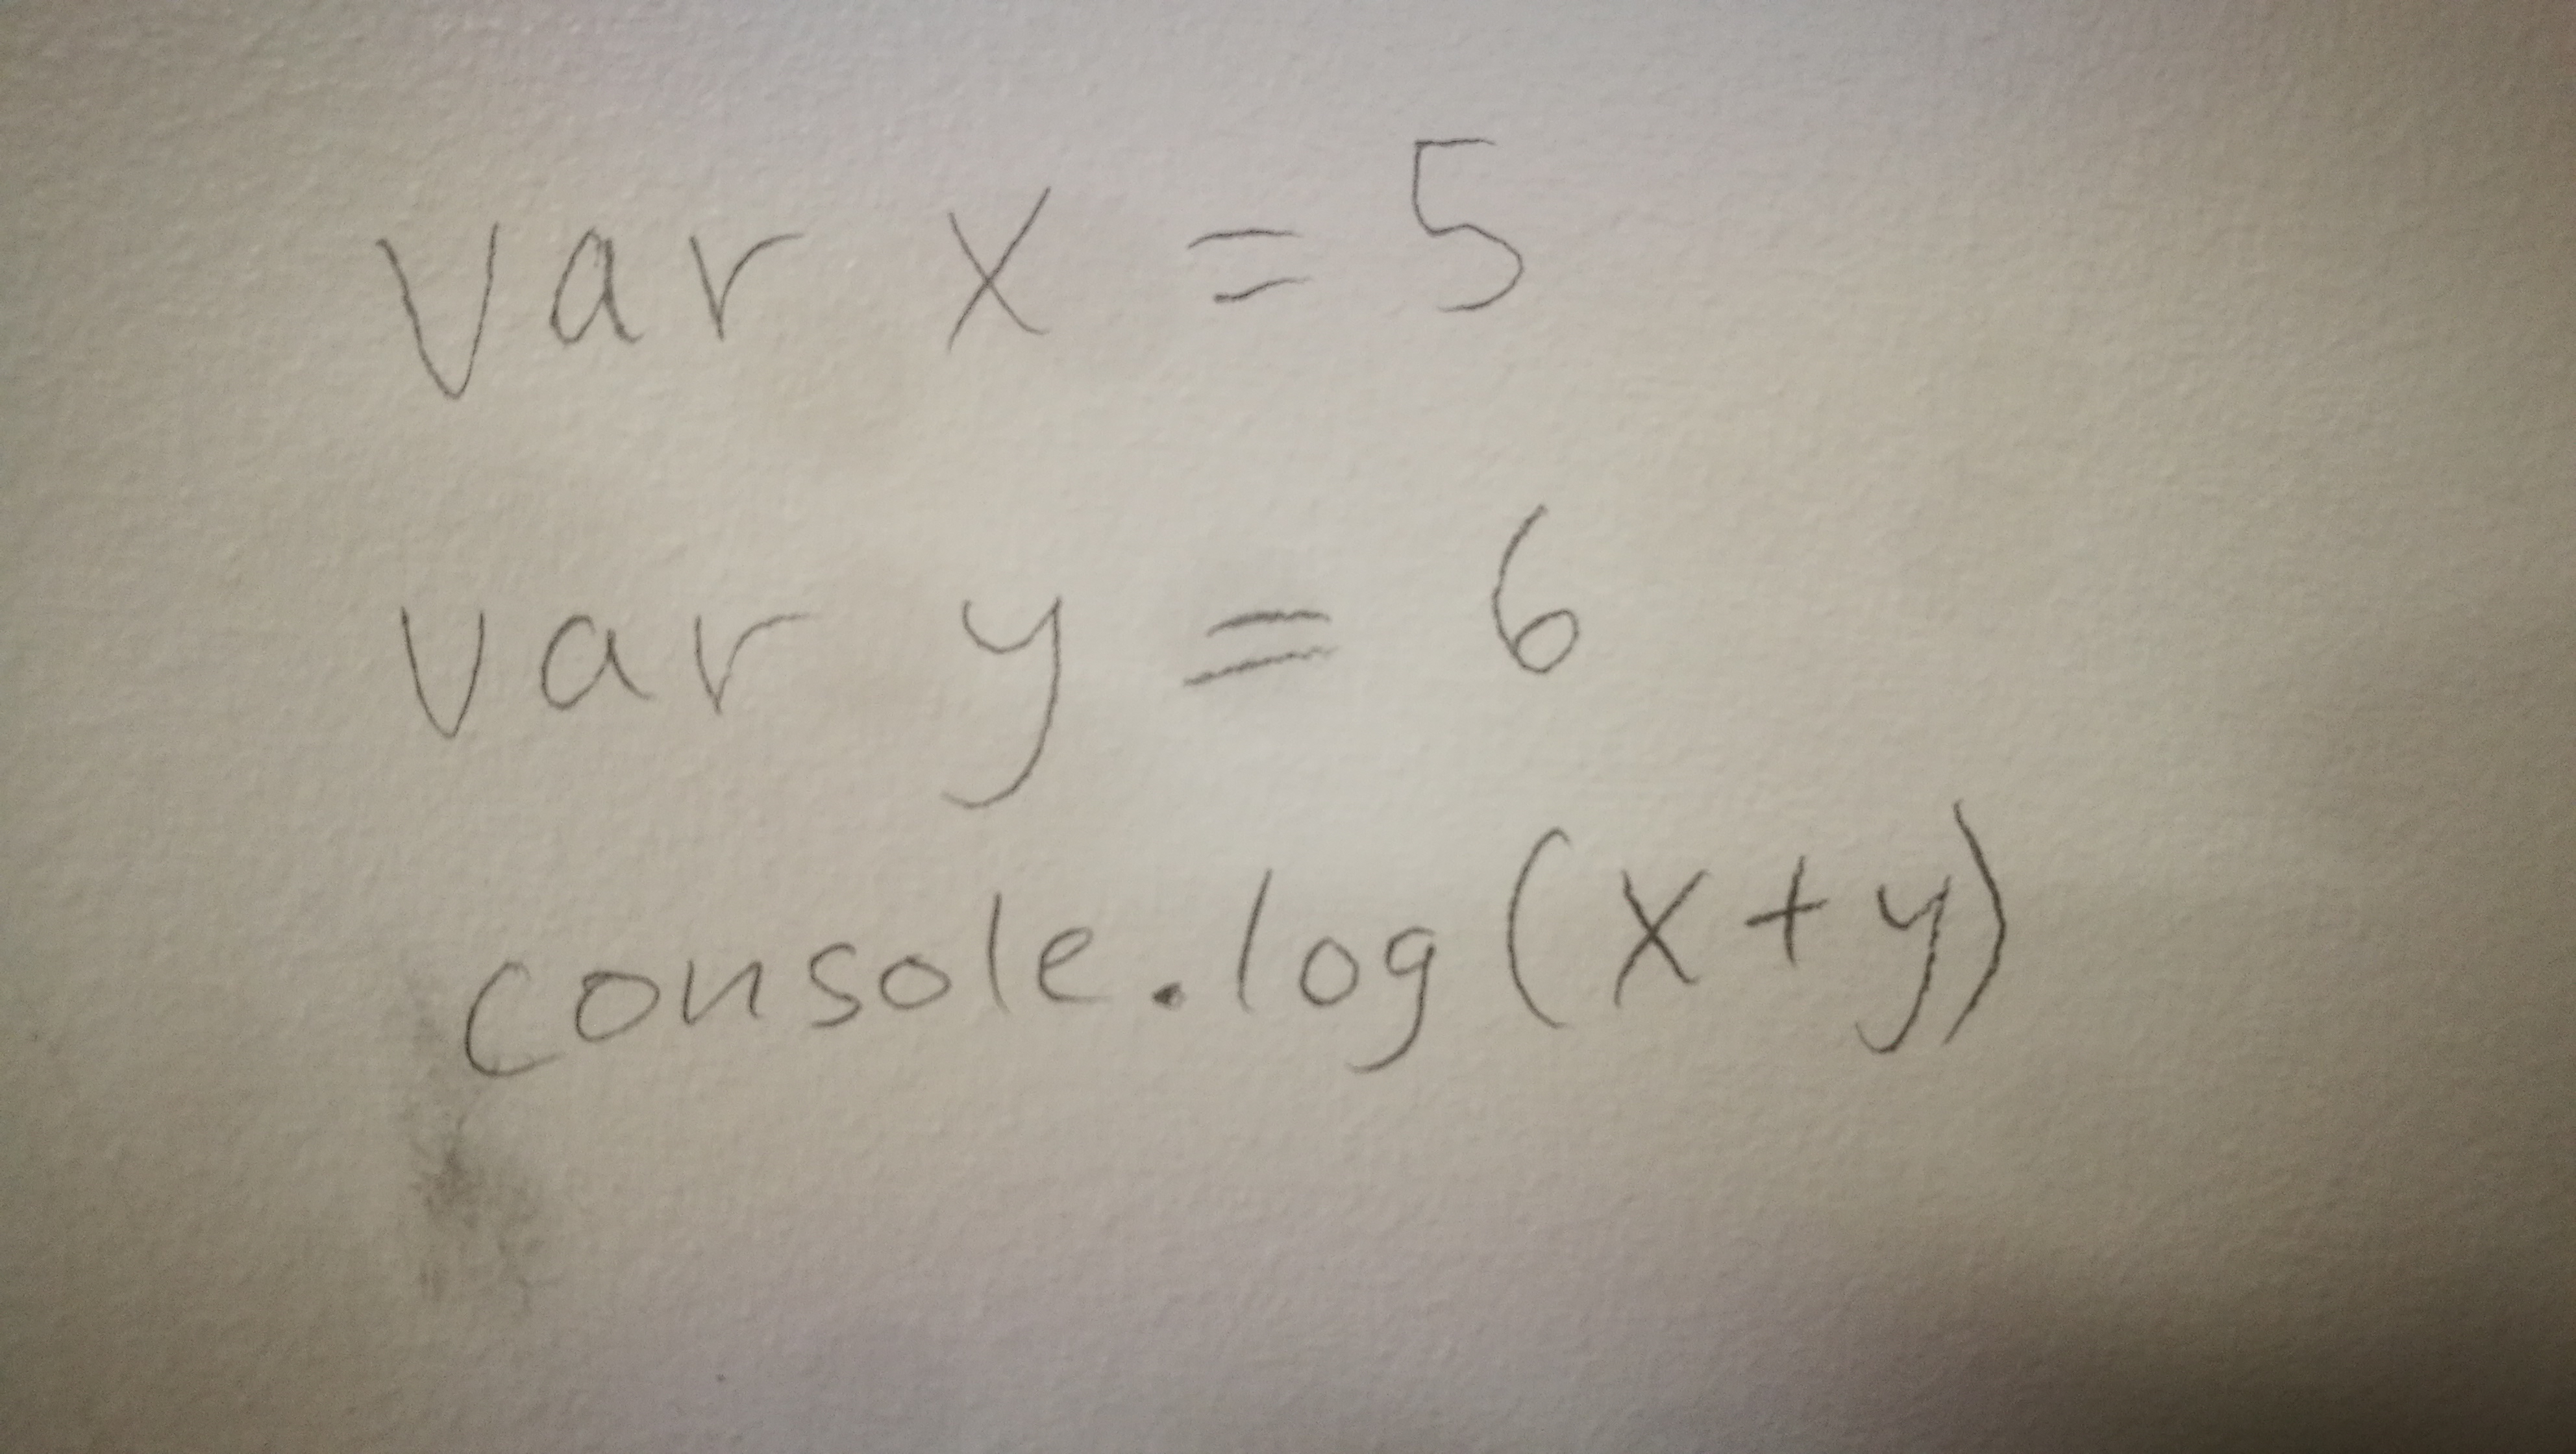 var x = 5
var y = 6
console.log(x+y)